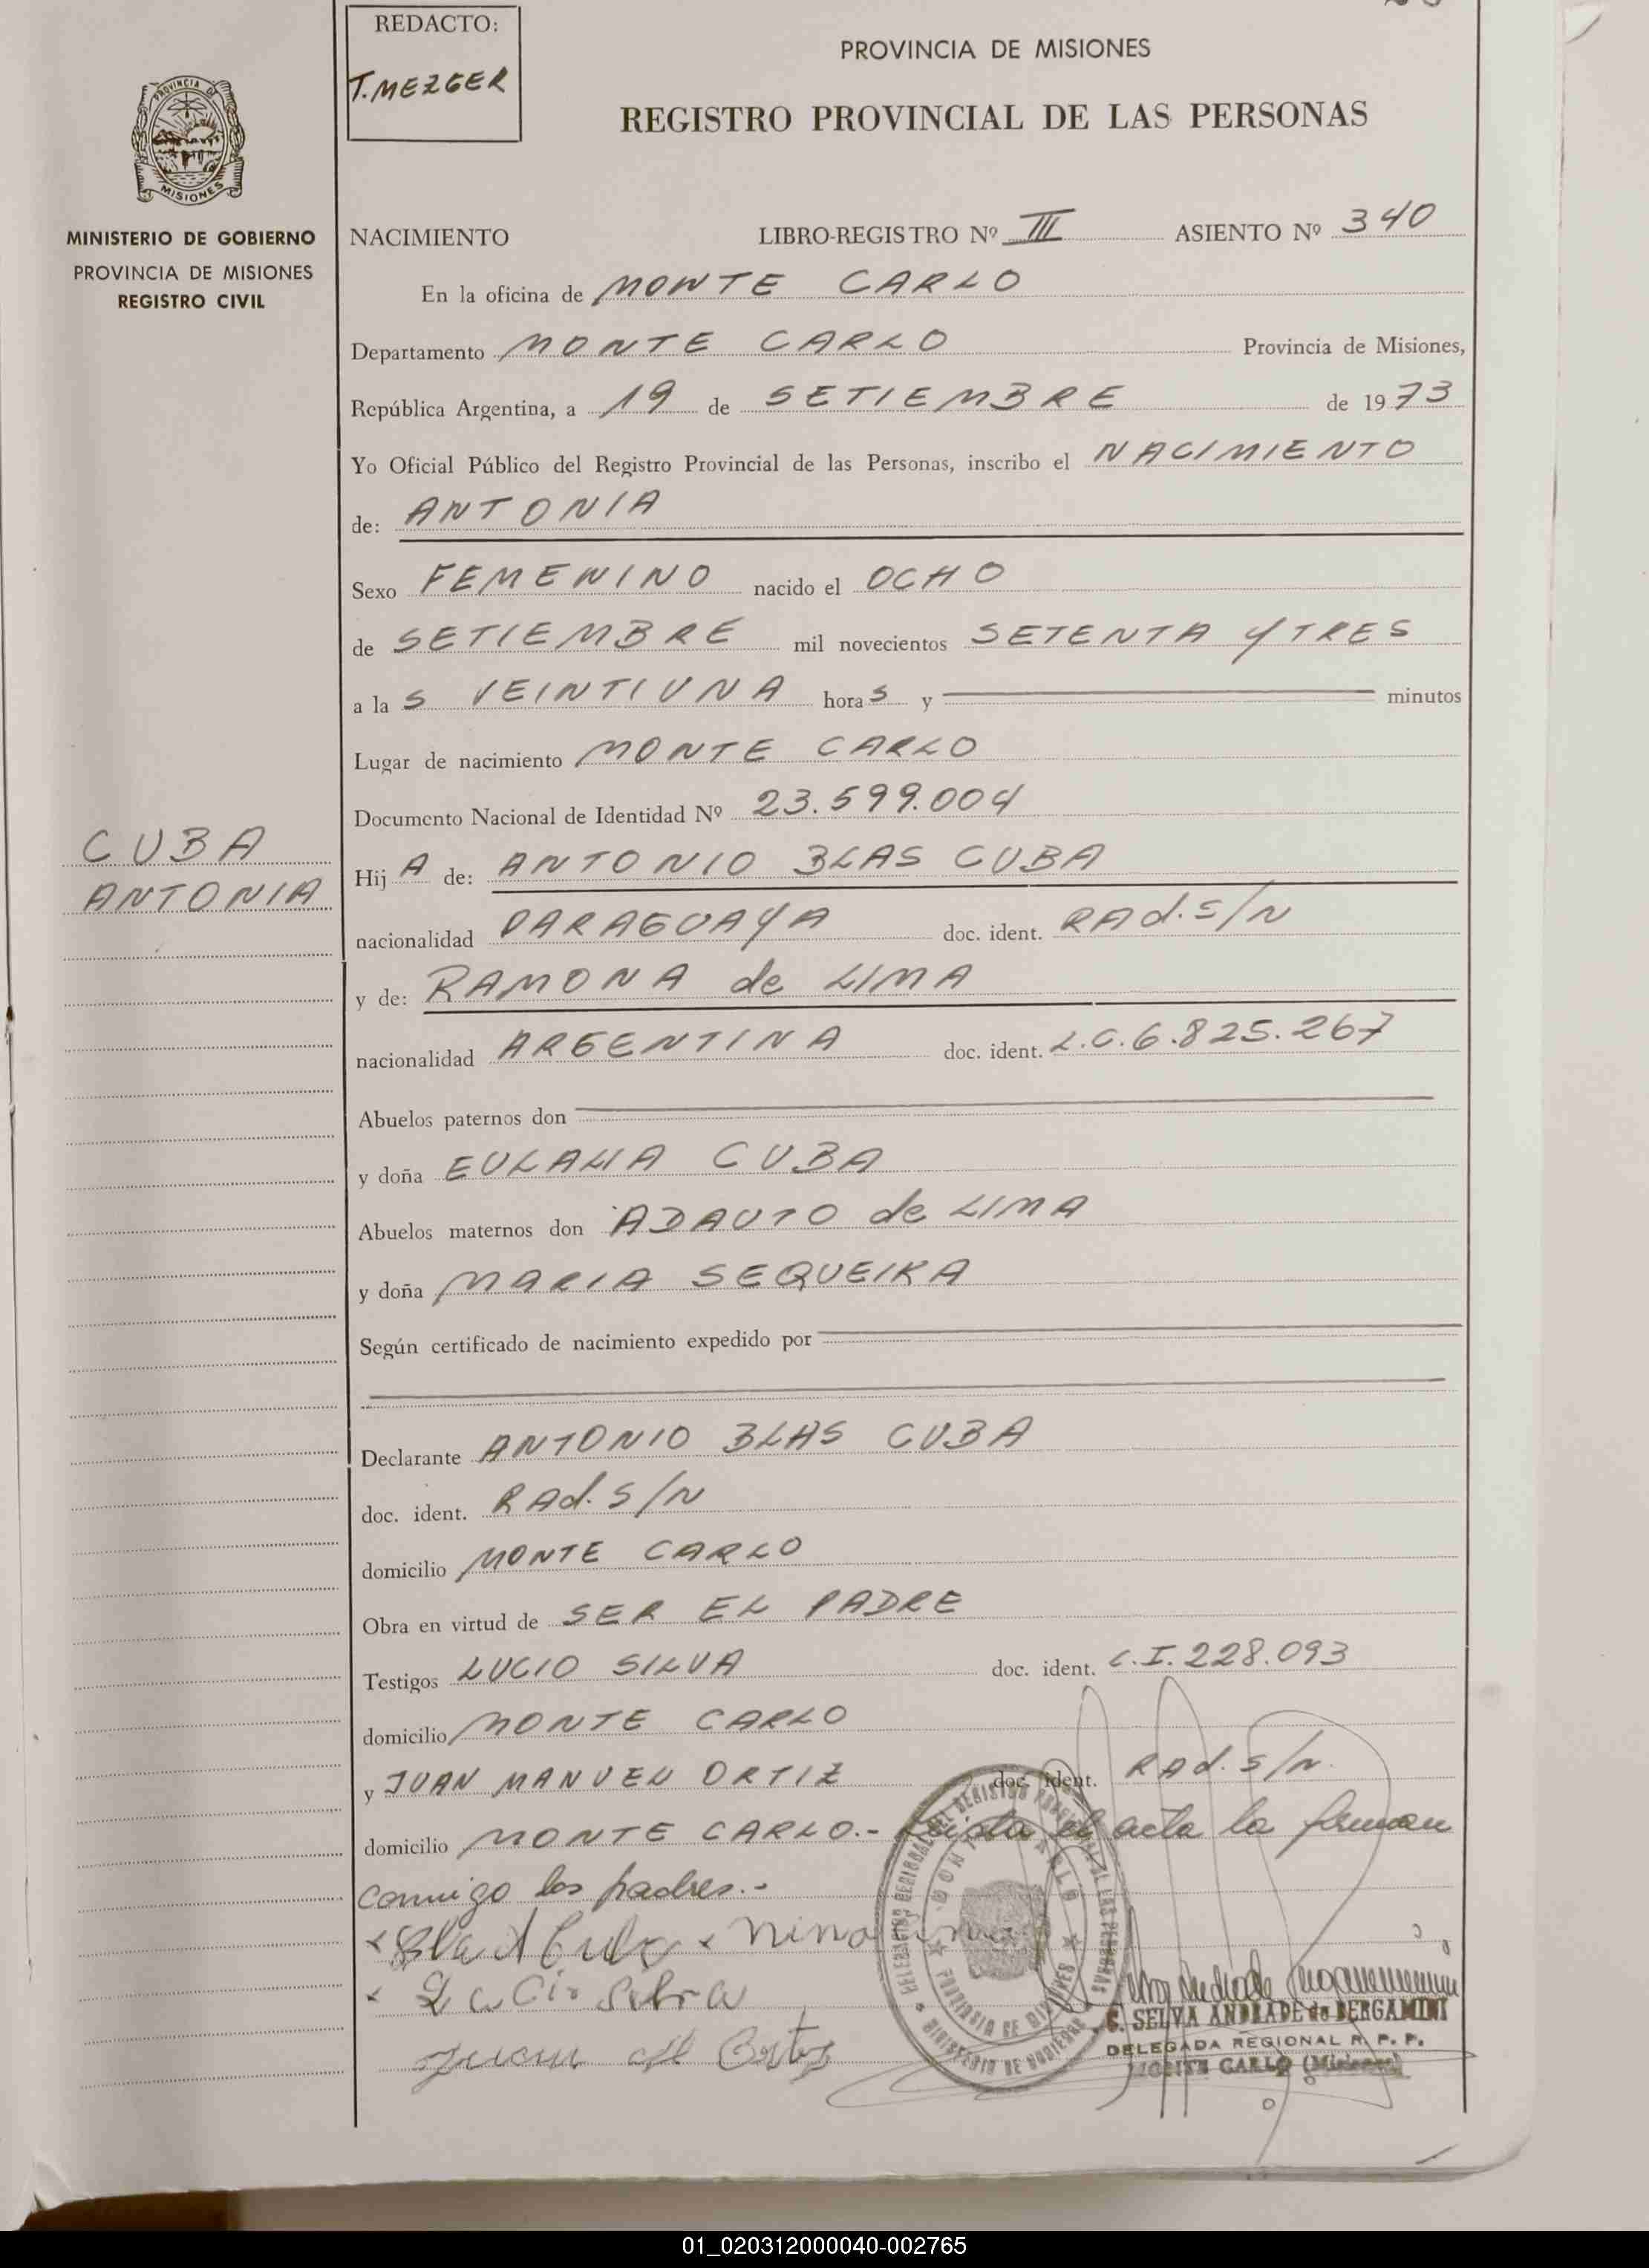 REDACTO:
T. MEZGER
PROVINCIA DE MISIONES
REGISTRO PROVINCIAL DE LAS PERSONAS
PROVINCIA DE
MISIONES
MINISTERIO DE GOBIERNO
PROVINCIA DE MISIONES
REGISTRO CIVIL
NACIMIENTO LIBRO-REGISTRO Nº III ASIENTO Nº 340
En la oficina de MONTE CARLO
Departamento MONTE CARLO Provincia de Misiones,
República Argentina, a 19 de SETIEMBRE de 1973
Yo Oficial Público del Registro Provincial de las Personas, inscribo el NACIMIENTO
de: ANTONIA
Sexo FEMENINO nacido el OCHO
de SETIEMBRE mil novecientos SETENTA Y TRES
a las VEINTIUNA horas y minutos
Lugar de nacimiento MONTE CARLO
Documento Nacional de Identidad Nº 23.599.004
CUBA
ANTONIA
HijA de: ANTONIO BLAS CUBA
nacionalidad PARAGUAYA doc. ident. RAd. S/N
y de: RAMONA de LIMA
nacionalidad ARGENTINA doc. ident. L.C. 6.825.267
Abuelos paternos don
y doña EULALIA CUBA
Abuelos maternos don ADAUTO de LIMA
y doña MARIA SEQUEIRA
Según certificado de nacimiento expedido por
Declarante ANTONIO BLAS CUBA
doc. ident. RAd. S/N
domicilio MONTE CARLO
Obra en virtud de SER EL PADRE
Testigos LUCIO SILVA doc. ident. C.I. 228.093
domicilio MONTE CARLO
y JUAN MANUEL ORTIZ doc. ident. RAd. S/N.
domicilio MONTE CARLO.- Leida el acta la firman
conmigo los padres.-
C. SELVA ANDRADE de BERGAMINI
DELEGADA REGIONAL R. P. P.
MONTE CARLO (Misiones)
01_020312000040-002765